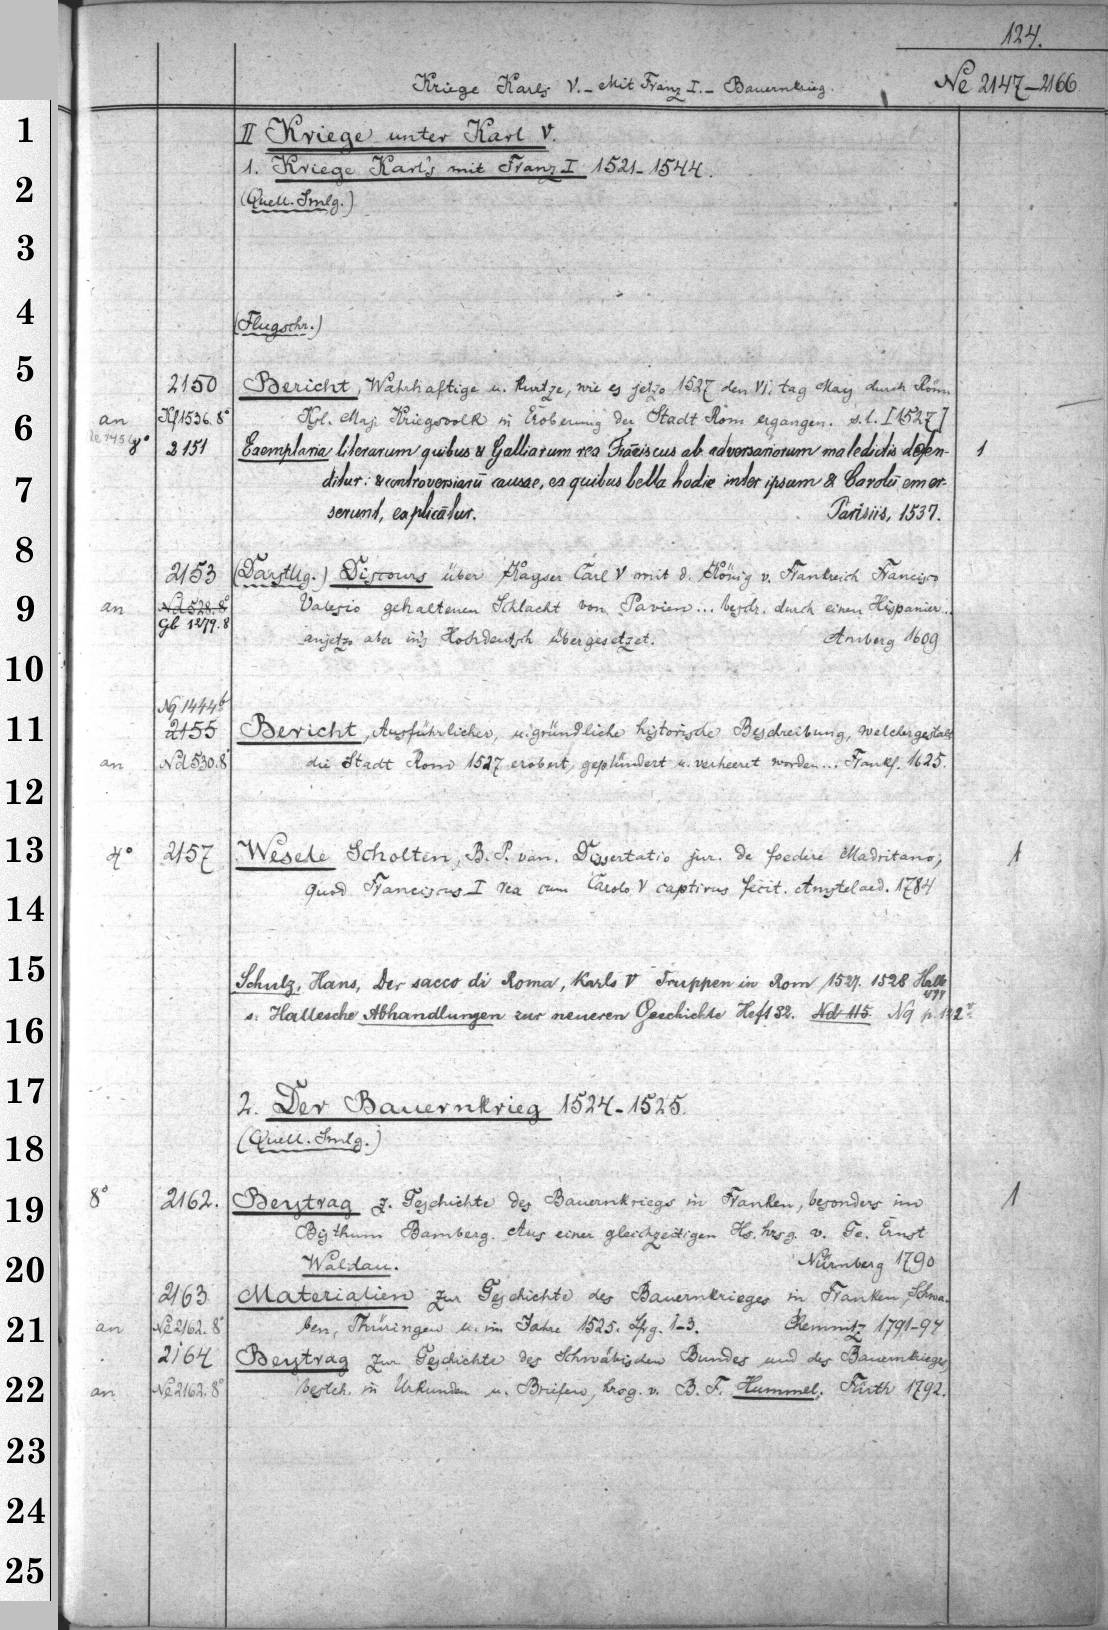 124.
Kriege Karls V. - Mit Franz I. - Bauernkrieg. Ne 2147-2166
1
II Kriege unter Karl V.
1. Kriege Karl's mit Franz I 1521-1544.
2
(Quell. Smlg.)
3
4
(Flugschr.)
5
2150 Bericht, Wahrhaftige u. kurtze, wie es jetzo 1527 den VI. tag May durch Röm.
6
an Kf 1536. 8° Kgl. Maj. Kriegsvolk in Eroberung der Stadt Rom ergangen. s. l. [1527]
8° 2151 Exemplaria literarum quibus & Galliarum rex Frāciscus ab adversariorum maledictis defen- 1
7
ditur: & controversiarū causae, ex quibus bella hodie inter ipsum & Carolū emer-
serunt, explicātur. Parisiis, 1537.
8
2153 (Darstllg.) Discours über Kayser Carl V mit d. König v. Frankreich Francisco
9
an Nd 528. 8° Valesio gehaltenen Schlacht von Pavien... beschr. durch einen Hispanier...
Gb 1279. 8
anjetzo aber in's Hochdeutsch übergesetzet. Amberg 1609
10
Ng 1444b
11
2155 Bericht, Ausführlicher, u. gründliche historische Beschreibung, welchergestalt
an Nd 530. 8° die Stadt Rom 1527 erobert, geplündert u. verheeret worden... Frankf. 1625.
12
13
4° 2157 Wesele Scholten, B. P. van. Dissertatio jur. de foedere Madritano, 1
quod Franciscus I rex cum Carolo V captivus fecit. Amstelaed. 1784
14
15
Schulz, Hans, Der sacco di Roma, Karls V Truppen in Rom 1527. 1528 Halle
16
s. Hallesche Abhandlungen zur neueren Geschichte Heft 32. Nd 115 Ng p.
17
2. Der Bauernkrieg 1524-1525.
18
(Quell. Smlg.)
19
8° 2162. Beytrag z. Geschichte des Bauernkriegs in Franken, besonders im 1
Bisthum Bamberg. Aus einer gleichzeitigen Hs. hrsg. v. Ge. Ernst
20
Waldau. Nürnberg 1790
2163 Materialien zur Geschichte des Bauernkrieges in Franken, Schwa-
21
an Ne 2162. 8° ben, Thüringen u. im Jahre 1525. Lfrg. 1-3. Chemnitz 1791-94
2164 Beytrag zur Geschichte des Schwäbischen Bundes und des Bauernkrieges,
22
an Ne 2162. 8° besteh. in Urkunden u. Briefen, hrog. v. B. F. Hummel. Fürth 1792.
23
24
25